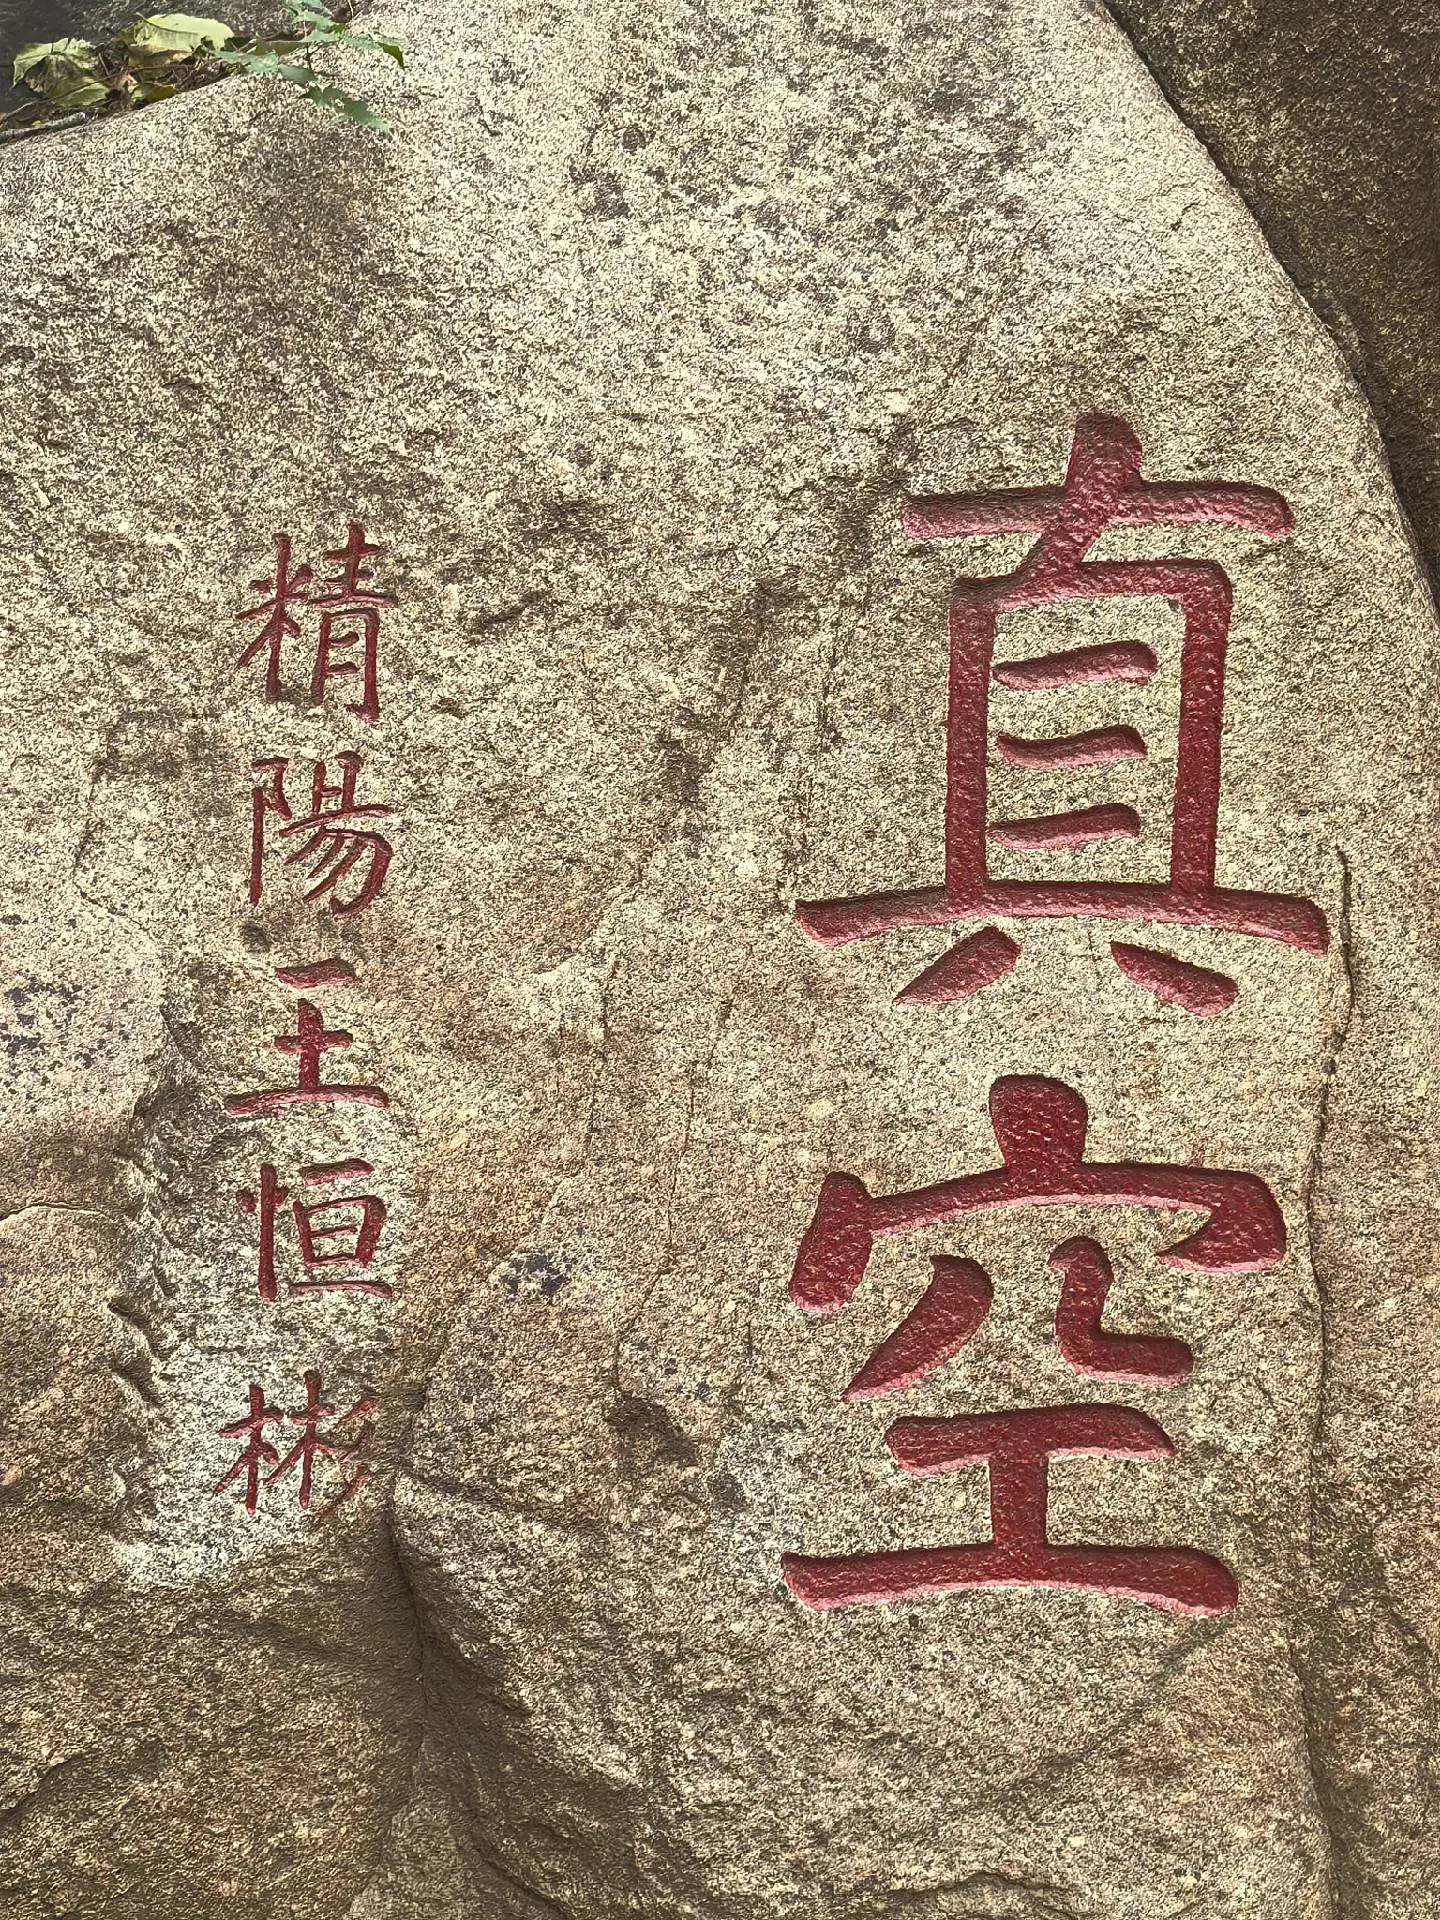 真空
精陽王恒彬